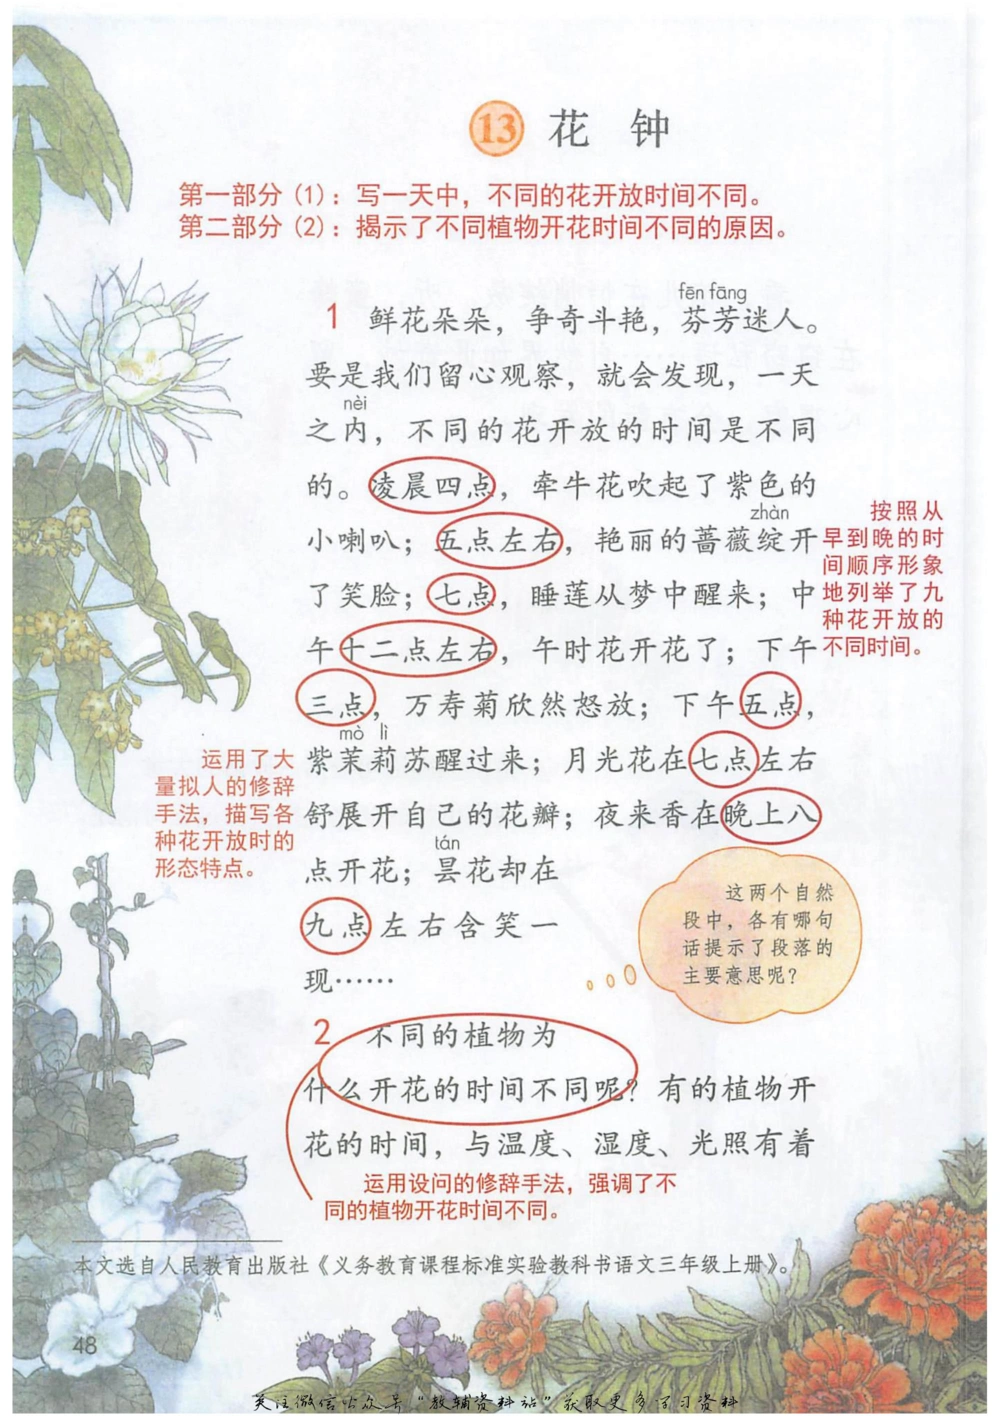 13 花 钟
第一部分（1）：写一天中，不同的花开放时间不同。
第二部分（2）：揭示了不同植物开花时间不同的原因。
fēn fāng
1 鲜花朵朵，争奇斗艳，芬芳迷人。
要是我们留心观察，就会发现，一天
nèi
之内，不同的花开放的时间是不同
的。凌晨四点，牵牛花吹起了紫色的
zhàn
小喇叭；五点左右，艳丽的蔷薇绽开
了笑脸；七点，睡莲从梦中醒来；中
午十二点左右，午时花开花了；下午
三点，万寿菊欣然怒放；下午五点，
mò lì
紫茉莉苏醒过来；月光花在七点左右
舒展开自己的花瓣；夜来香在晚上八
tán
点开花；昙花却在
九点左右含笑一
现……
按照从
早到晚的时
间顺序形象
地列举了九
种花开放的
不同时间。
运用了大
量拟人的修辞
手法，描写各
种花开放时的
形态特点。
这两个自然
段中，各有哪句
话提示了段落的
主要意思呢？
2 不同的植物为
什么开花的时间不同呢？有的植物开
花的时间，与温度、湿度、光照有着
运用设问的修辞手法，强调了不
同的植物开花时间不同。
本文选自人民教育出版社《义务教育课程标准实验教科书语文三年级上册》。
48
关注微信公众号“教辅资料站”获取更多学习资料